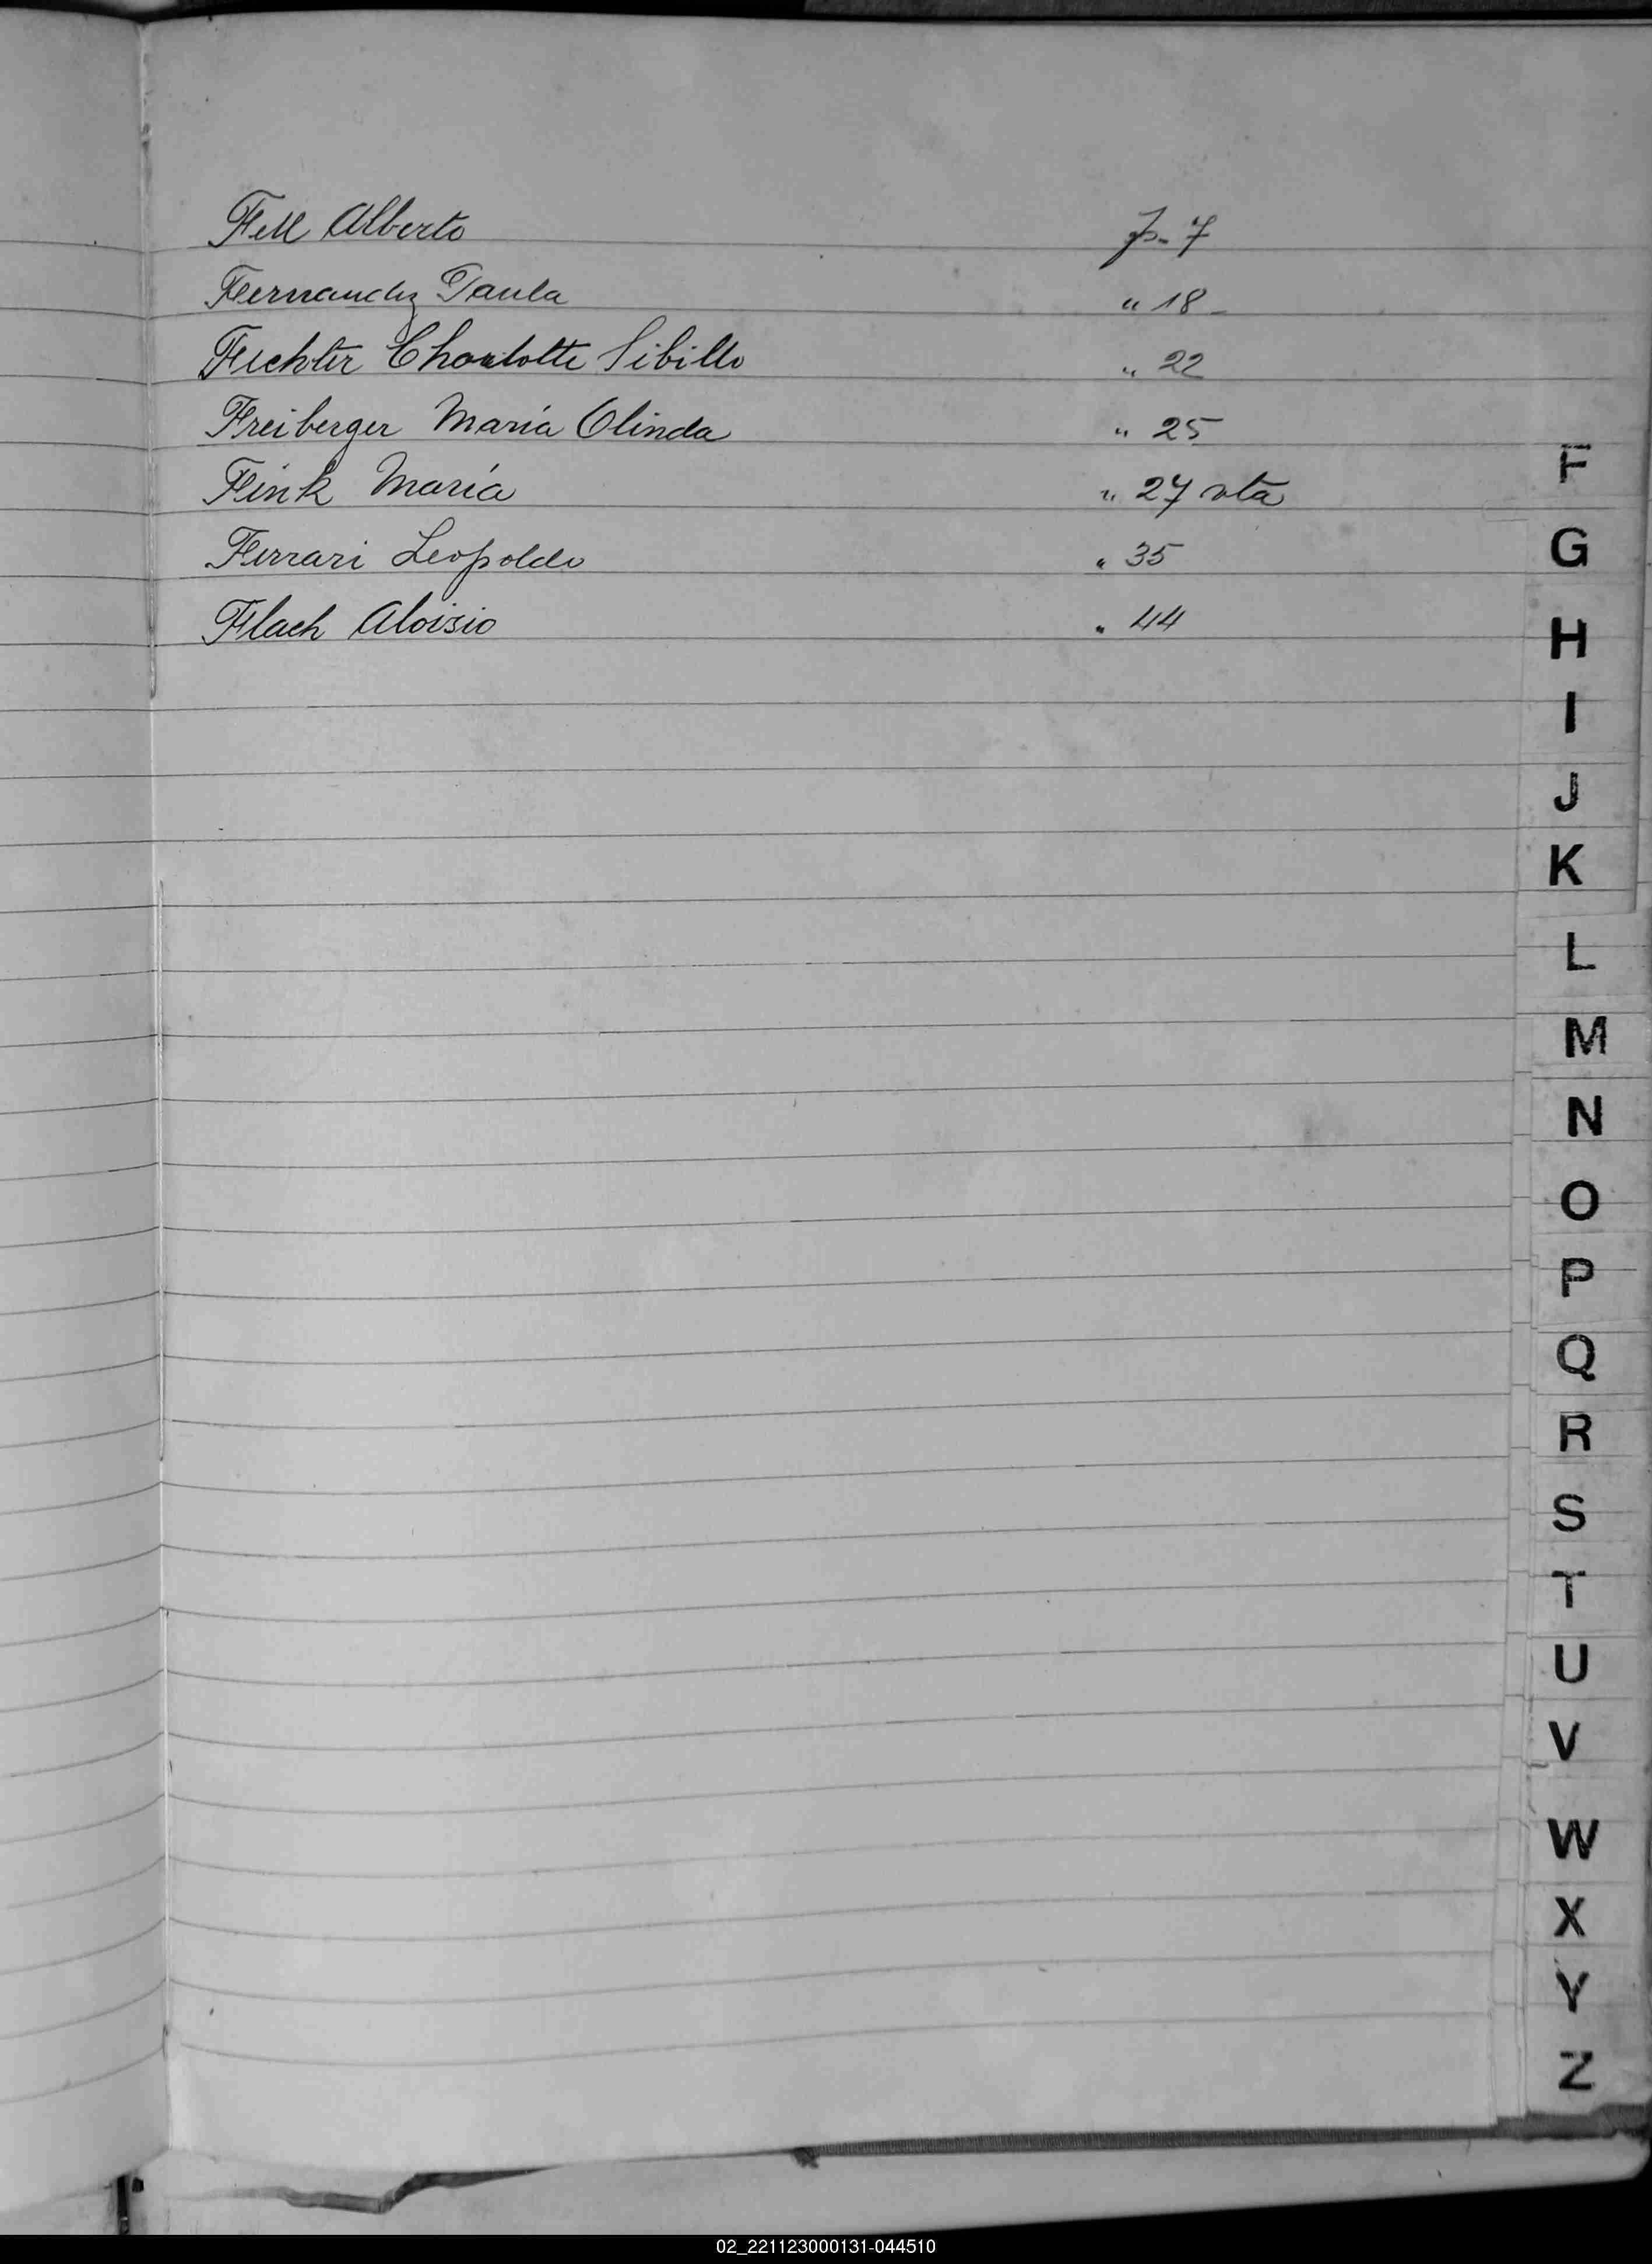 Fell Alberto p. 7
Fernandez Paula " 18 -
Fichter Charlotte Sibille " 22
Freiberger María Olinda " 25
Fink María " 27 vta
Ferrari Leopoldo " 35
Flach Aloisio " 44
F
G
H
I
J
K
L
M
N
O
P
Q
R
S
T
U
V
W
X
Y
Z
02_221123000131-044510